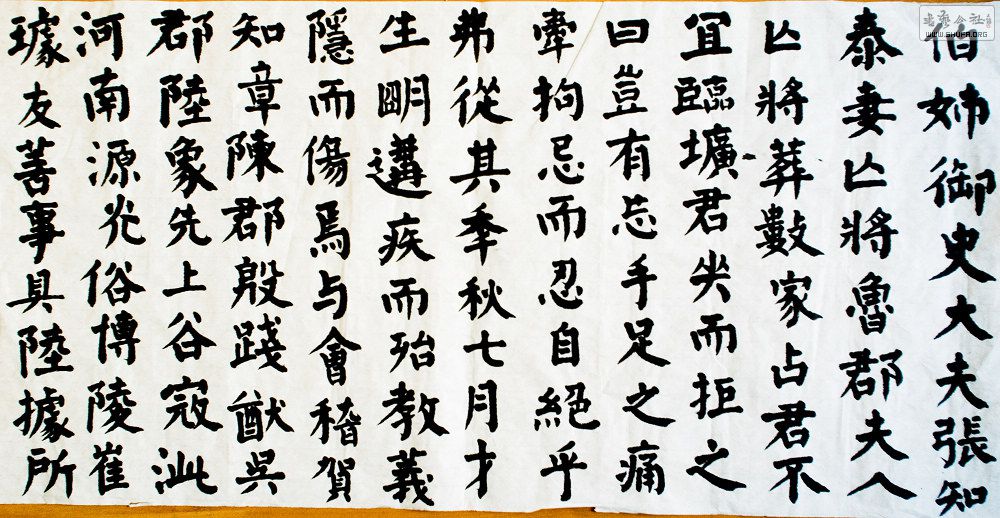 伯姉御史大夫張知
泰妻亾將魯郡夫人
亾將葬數家占君不
宜臨壙君哭而拒之
曰豈有忘手足之痛
牽拘忌而忍自絕乎
弗從其季秋七月才
生朙遘疾而殆教義
隱而傷焉与會稽賀
知章陳郡殷踐猷吳
郡陸象先上谷寇泚
河南源光俗博陵崔
璩友善事具陸據所
書藝公社
WWW.SHUFA.ORG